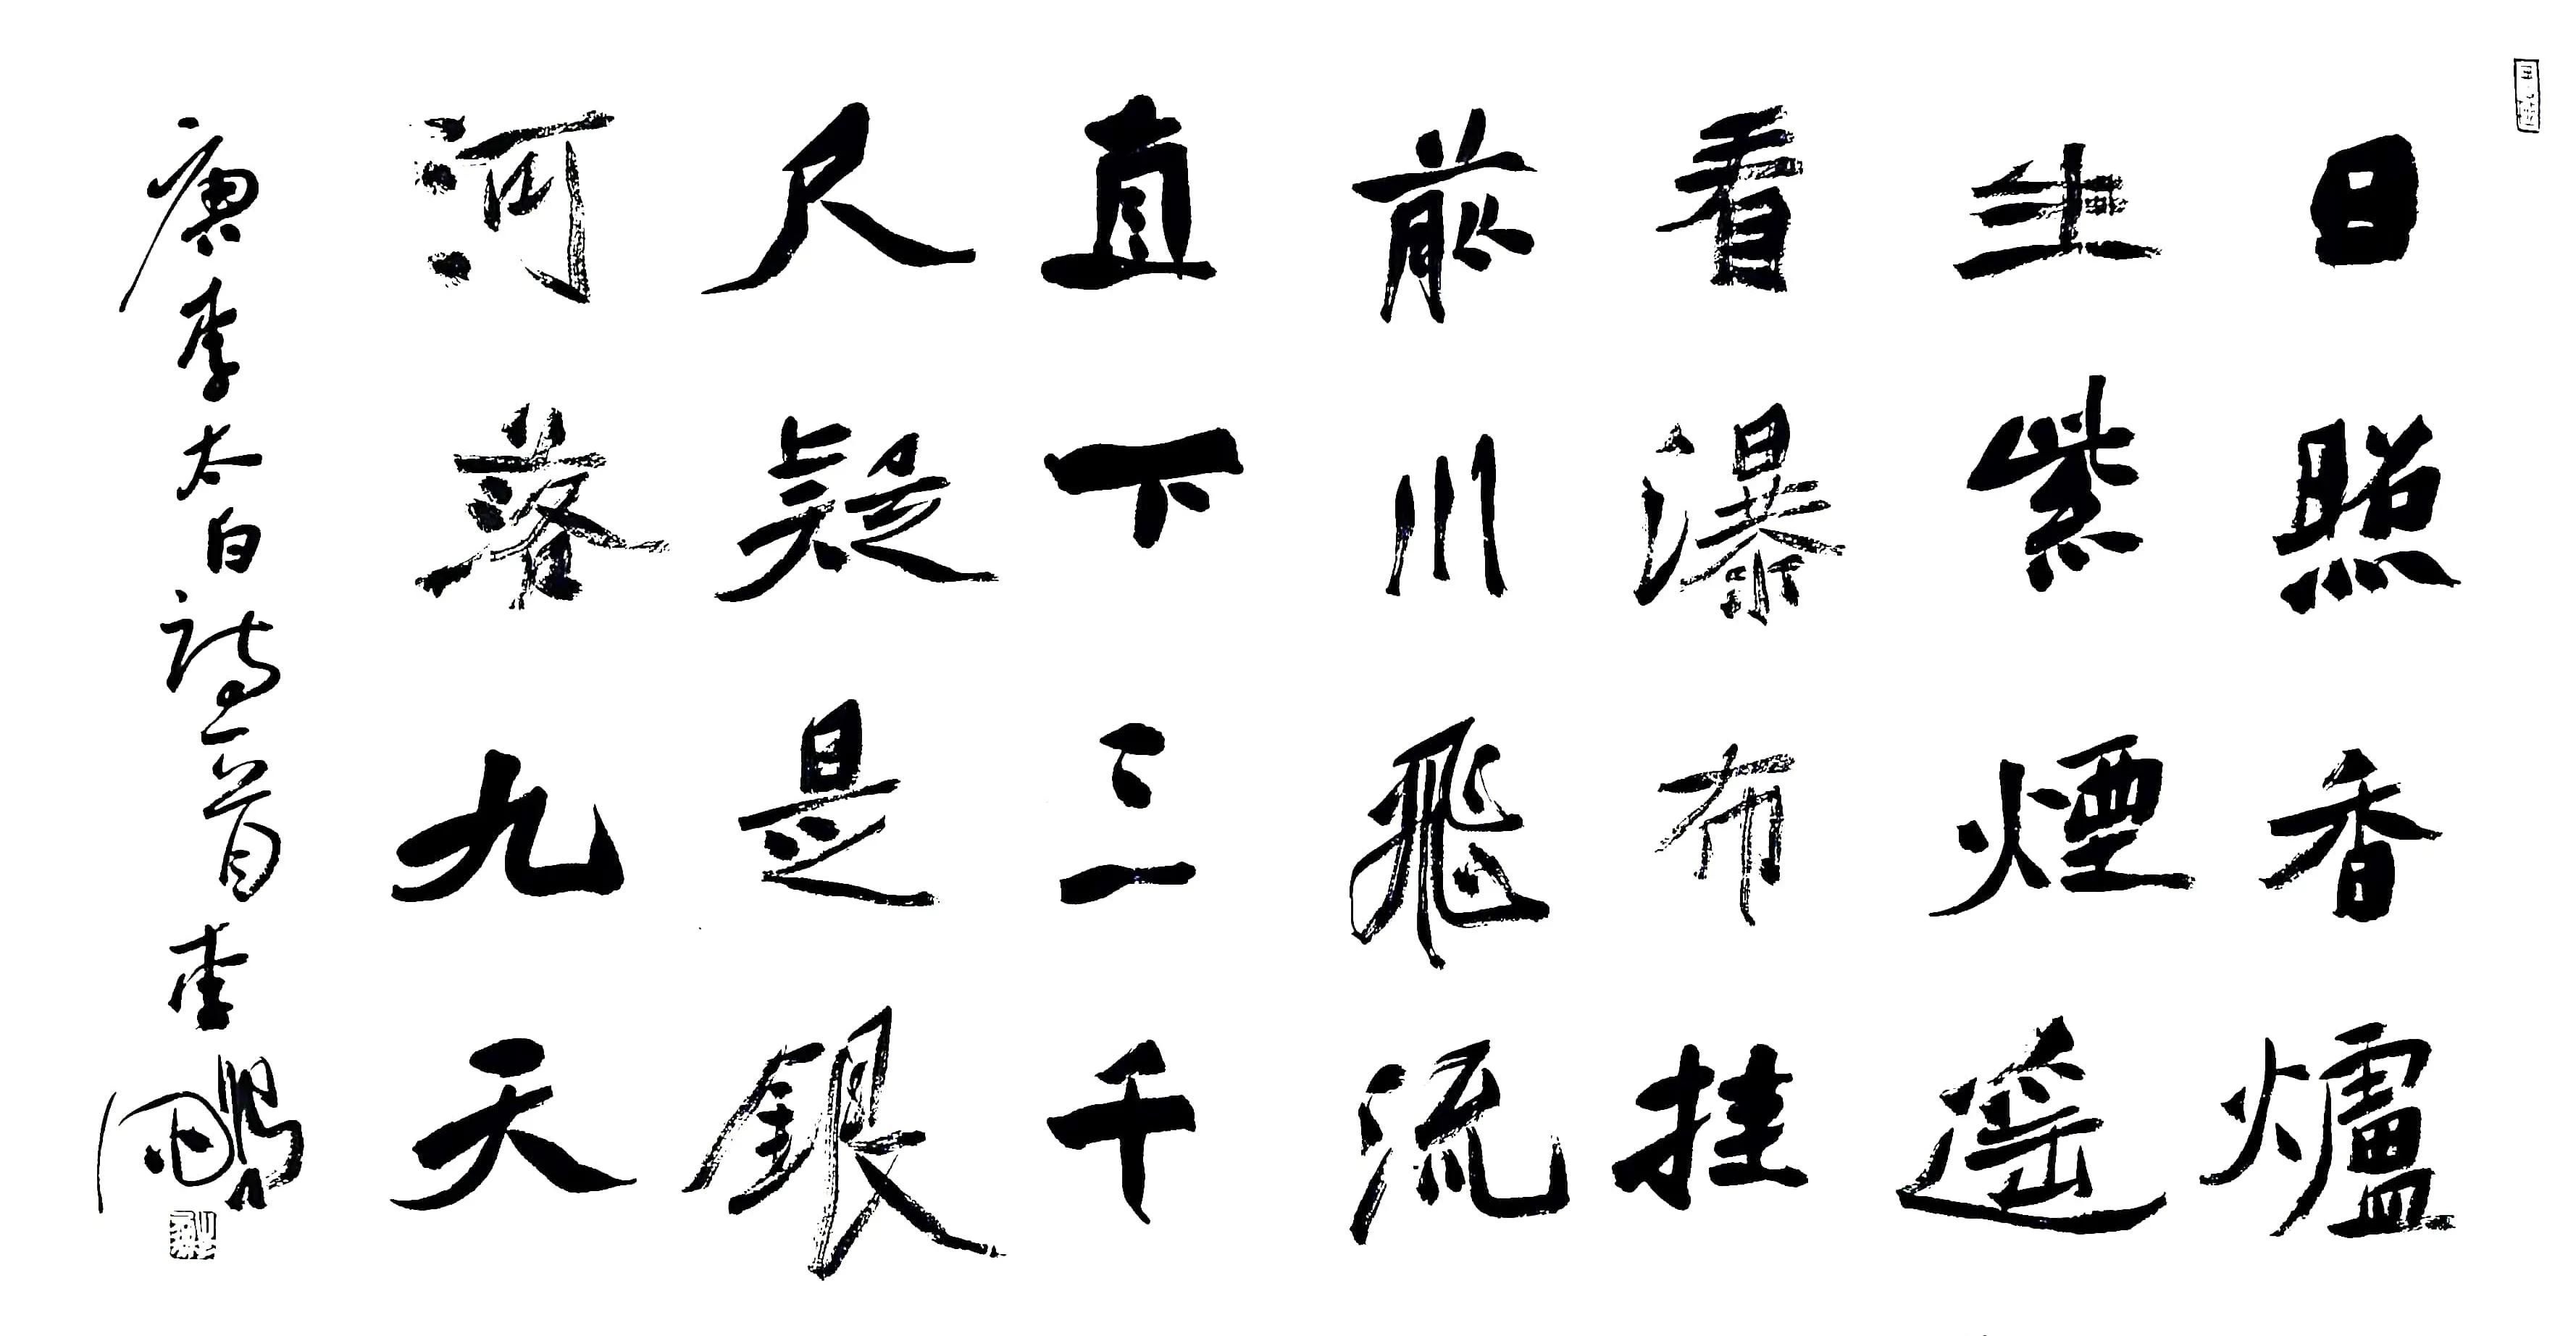 日照香爐
生紫煙遥
看瀑布挂
前川飛流
直下三千
尺疑是銀
河落九天
唐李太白詩一首李鵬